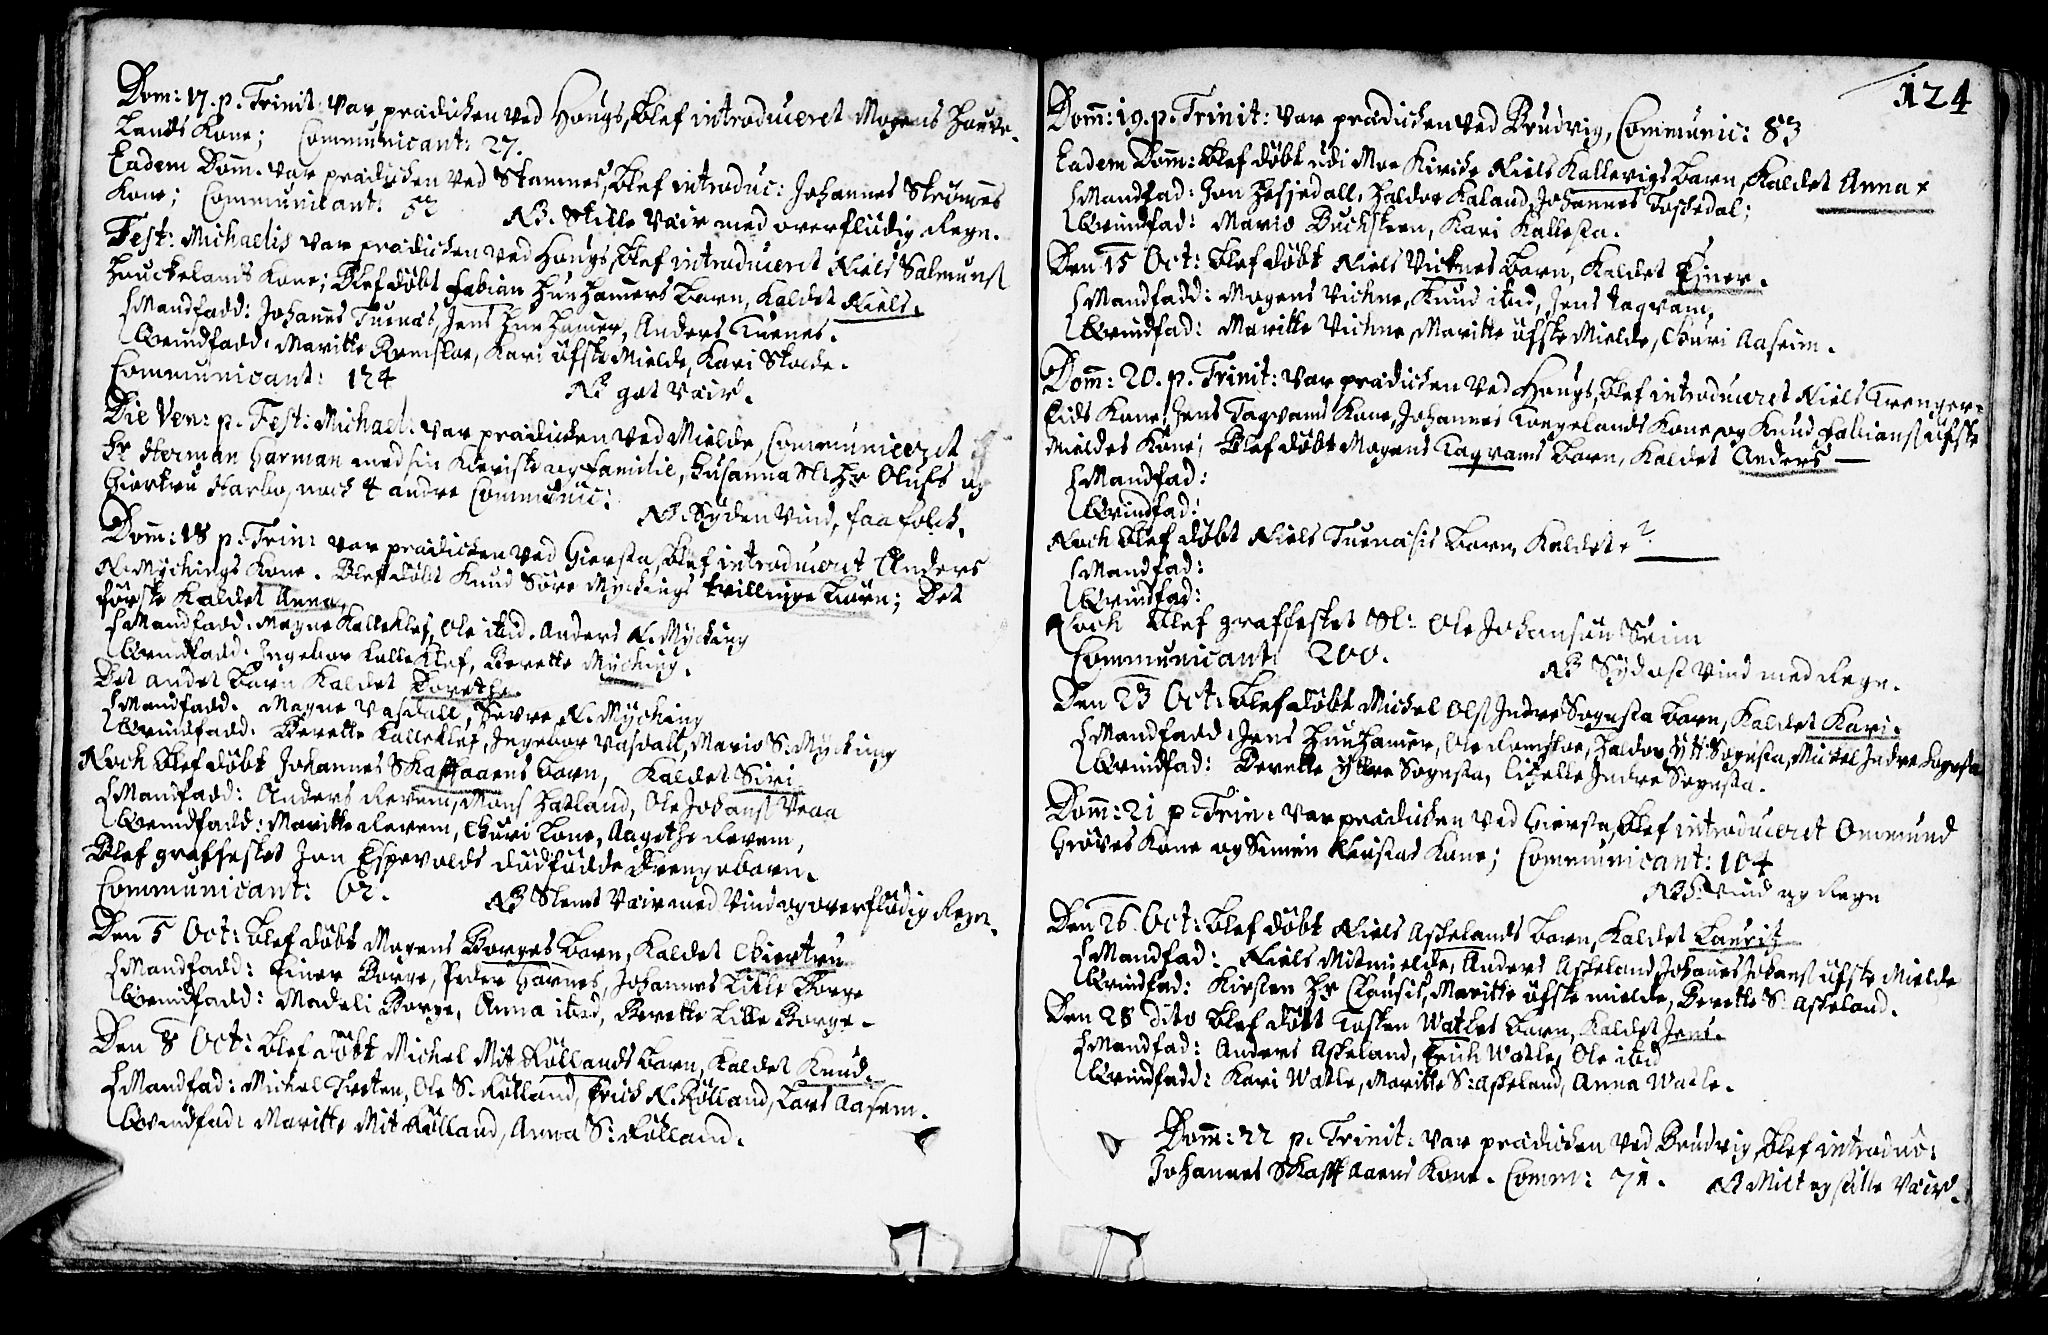 Dom: 17. p. Trinit: var prædicken ved Hougs, blef introduceret Mogens Houve-
lands Kone; Communicant: 27.
Eadem Dom̄. var prædicken ved Stamnes, blef introduc: Johannes Strømmes
Kone; Communicant: NB. Stille Vair med overflødig Regn.
Fest: Michaelis var prædicken ved Hougs, blef introduceret Niels Salmuns
Houckelands Kone; Blef døbt Fabian Hunhamers barn, Kaldet Niels.
Mandfadd: Johannes Tuenæs, Jens Hunhamer, Anders Tuenes.
Qvindfadd. Maritte Romsloe, Kari Øfste Mielde, Kari Skode.
Communicant: 124 NB got Vair.
Die Ven: p. Fest: Michael: var prædicken ved Mielde, Communiceret
Hr Herman Harman med sin Kieriste og familie, Susanna Sl: Hr Olufs og
Giertru Harbo, noch 4 andre Communic:
NB. Syden Vind, faa folch.
Dom̄: 18 p. Trin: var prædicken ved Giersta, blef introduceret Anders
N. Mychings Kone. Blef døbt Knud Søre Myckings tvillinge børn; Det
første Kaldet Anna.
Mandfadd. Magne Kalleklef, Ole ibid. Anders N. Myching
Qvindfadd. Ingebor Kalleklef, Berette Myching.
Det andet barn Kaldet Dorethe.
Mandfadd. Magne Vasdall, Sevre N. Myching
Qvindfadd. Berette Kalleklef, Ingebor Vasdall, Mario S. Myching
Noch blef døbt Johannes Skafftaaens barn, Kaldet Siri
Mandfadd: Anders Revem, Mons Hatland, Ole Johans Veaa
Qvindfadd: Maritte Revem, Guri Lone, Aagethe Revem,
Blef graffestet Jon Espevolds dødfødde Drengebarn.
Communicant: 62. NB Slemt Vair med Vind og overflødig Regn.
Den 5 Oct: blef døbt Mogens Borges barn, Kaldet Giertru
Mandfadd: Einer Borge, Peder Harnes, Johannes Lille Borge
Qvindfadd: Madeli Borge, Anna ibid, Berette Lille Borge.
Den 8 Oct: blef døbt Michel Mit Røllands barn, Kaldet Knud.
Mandfad: Michel Treten, Ole S. Rølland, Erich N. Rølland, Lars Aasem.
Qvindfad: Maritte Mit Rølland, Anna S: Rølland.
124
Dom̄: 19. p. Trinit: var prædicken ved Brudvig, Communic: 83
Eadem Dom̄: blef døbt udi Moe Kircke Niels Kallevigs barn, Kaldet Anna
Mandfad: Jon Hesjedall, Haldor Kaland, Johannes Toskedal;
Qvindfad: Mario Buchsteen, Kari Kallesta.
Den 15 Oct: blef døbt Niels Vicknes barn, Kaldet Einer.
Mandfadd: Mogens Vichne, Knud ibid, Jens Tagvam,
Qvindfad: Maritte Vichne, Maritte Øfste Mielde, Guri Aaseim.
Dom̄: 20. p. Trinit: var prædicken ved Hougs, blef introduceret Niels Trenger-
eids Kone, Jens Tagvams Kone, Johannes Tongelands Kone og Knud Fabians Øfste
Mieldes Kone; Blef døbt Mogens Tagvams barn, Kaldet Anders
Mandfad:
Qvindfad:
Noch blef døbt Niels Tuenæsis barn, Kaldet ?
Mandfad:
Qvindfad:
Noch blef graffestet Sl: Ole Johansøn Seim
Communicant: 200. NB Sydost vind med Regn.
Den 23 Oct: blef døbt Michel Ols Indre Sognsta barn, Kaldet Kari.
Mandfadd: Jens Hunhamer, Ole Romsloe, Haldor ytt: Sognsta, Michel Indre Sognsta
Qvindfad: Berette yttre Sognsta, Lisbette Indre Sognsta.
Dom̄: 21 p. Trin: var prædicken ved Giersta, blef introduceret Ommund
Grøves Kone og Simen Reistad Kone; Communicant: 104
NB S. vind og Regn
Den 26 Oct: blef døbt Niels Askelands barn, Kaldet Lauritz
Mandfad: Niels Mitmielde, Anders Askeland, Johannes Johans Øfste Mielde
Qvindfad: Kirsten Hr Clausis, Maritte Øfste Mielde, Berette S. Askeland.
Den 28 dito blef døbt Tosten Watles barn, Kaldet Jens.
Mandfad: Anders Askeland, Erich Watle, Ole ibid
Qvindfadd: Kari Watle, Maritte S: Askeland, Anna Watle.
Dom̄: 22 p. Trinit: var prædicken ved Brudvig, blef introduc:
Johannes Skafftaaens Kone. Comm: 71. NB Milt og stille Vaird.